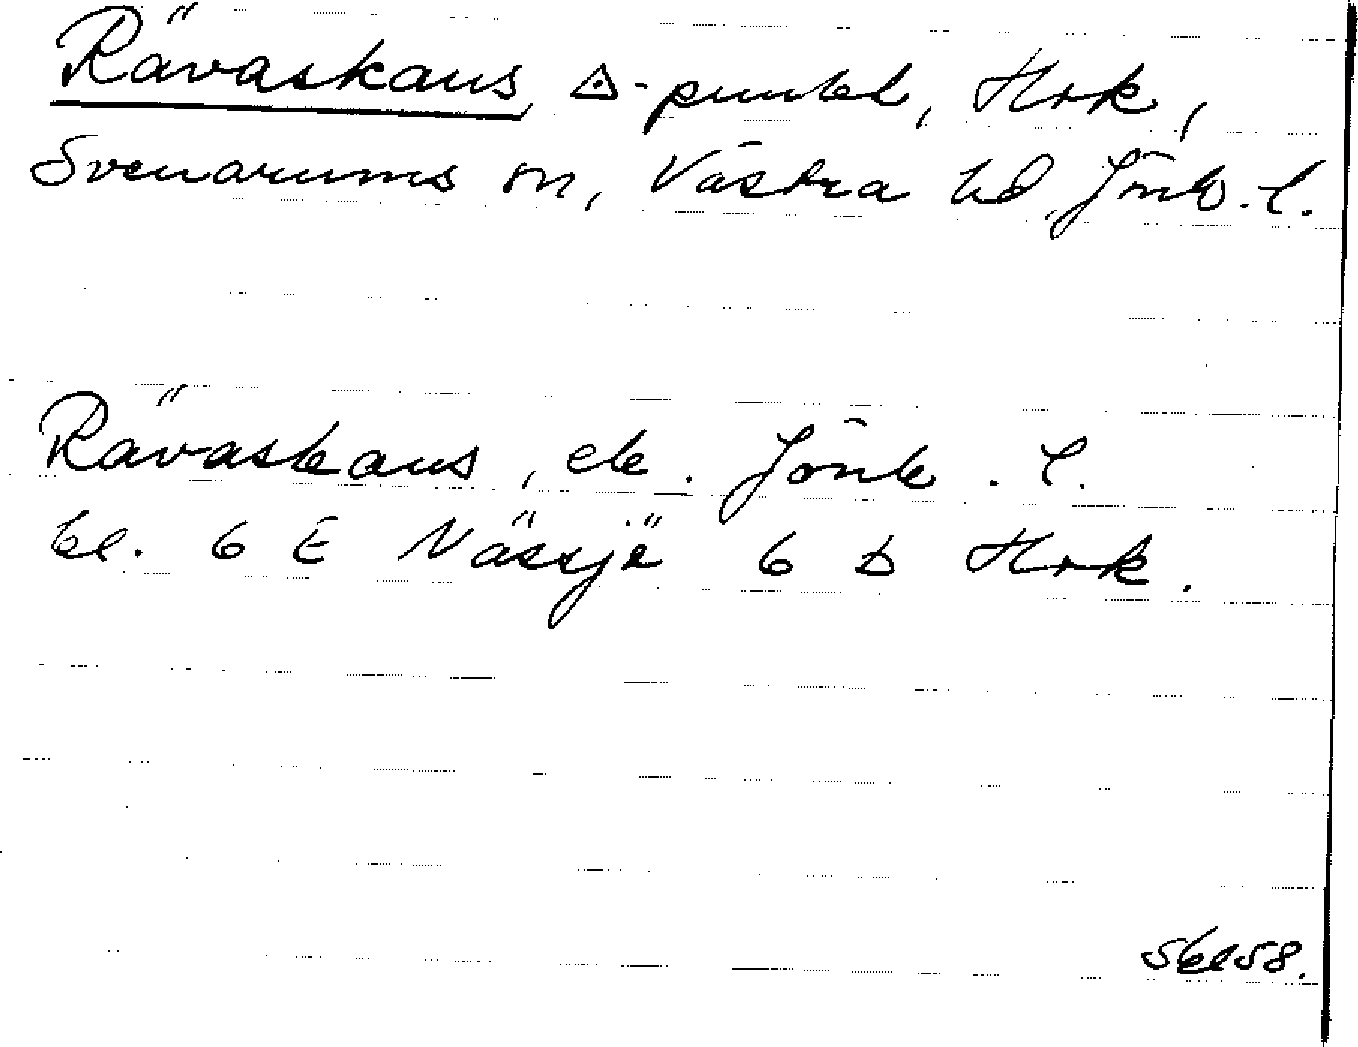 Rävaskans, △-punkt, Hok,
Svenarums sn, Västra hd, Jönk. l.
Rävaskans, ek. Jönk. l.
bl. 6 E Nässjö 6 D Hok.